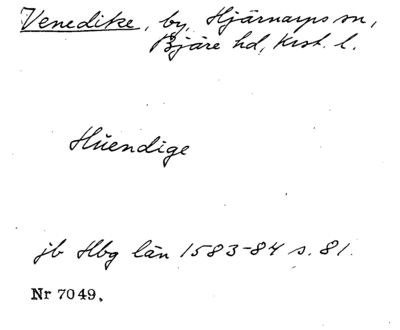 Venedike, by, Hjärnarps sn,
Bjäre hd, Krst. l.
Hüendige
jb Hbg län 1583-84 s. 81.
Nr 7049.